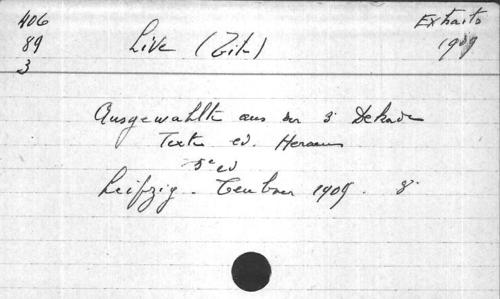 406
89
3
Live (Tite)
Extraits
1909
Ausgewahlte aus der 3e Dekade
Texte ed. Heraeus
5e ed
Leipzig - Teubner 1909. 8°